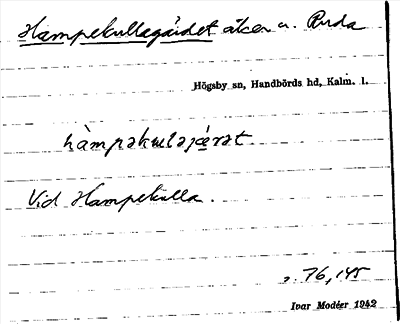 Hampekullegärdet åker u. Ruda
Högsby sn, Handbörds hd, Kalm. l.
hàmpəkuləjæ̣rət
Vid Hampekulla.
76,145
Ivar Modéer 1942